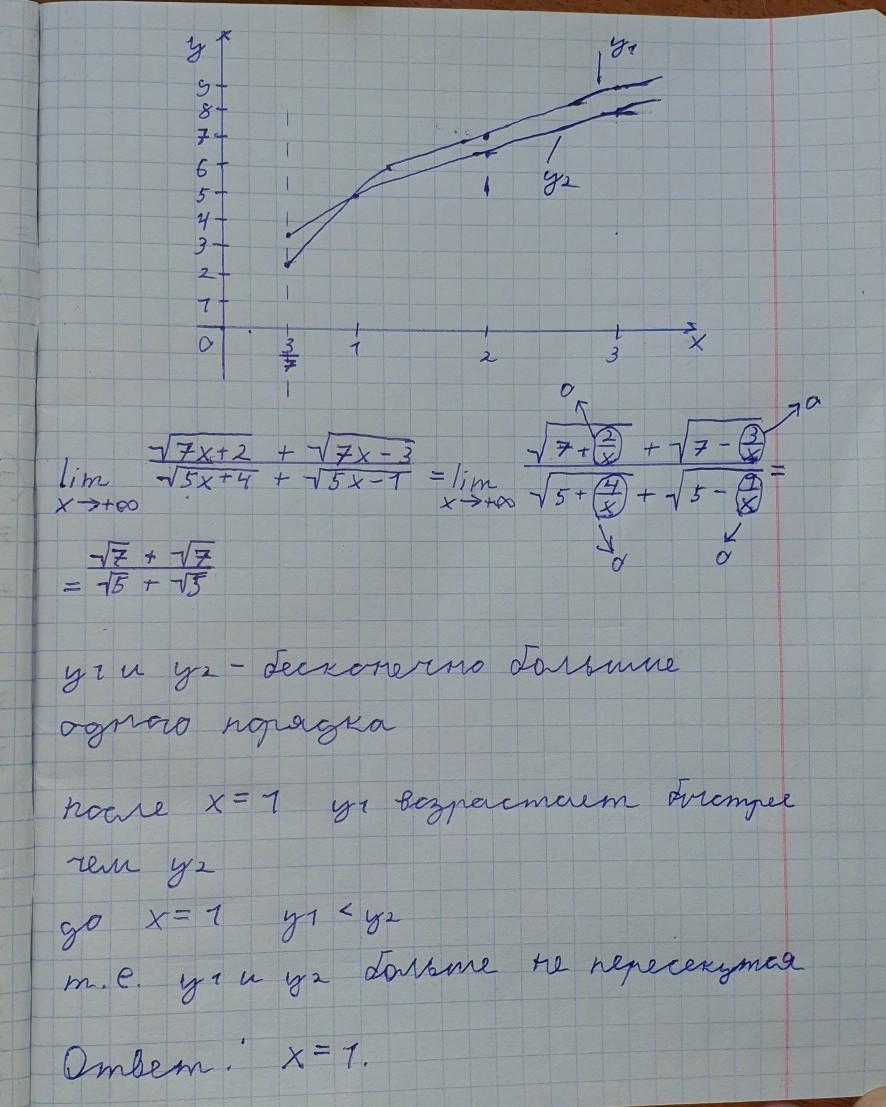 y
9
8
7
6
5
4
3
2
1
0
3/7
1
2
3
x
y₁
y₂
lim x→+∞ (√(7x+2) + √(7x-3))/(√(5x+4) + √(5x-1)) = lim x→+∞ (√(7+2/x) + √(7-3/x))/(√(5+4/x) + √(5-1/x)) =
0 0
0 0
= (√7 + √7)/(√5 + √5)
y₁ и y₂ - бесконечно большие
одного порядка
после x=1 y₁ возрастает быстрее
чем y₂
до x=1 y₁ < y₂
т.е. y₁ и y₂ больше не пересекутся
Ответ: x=1.